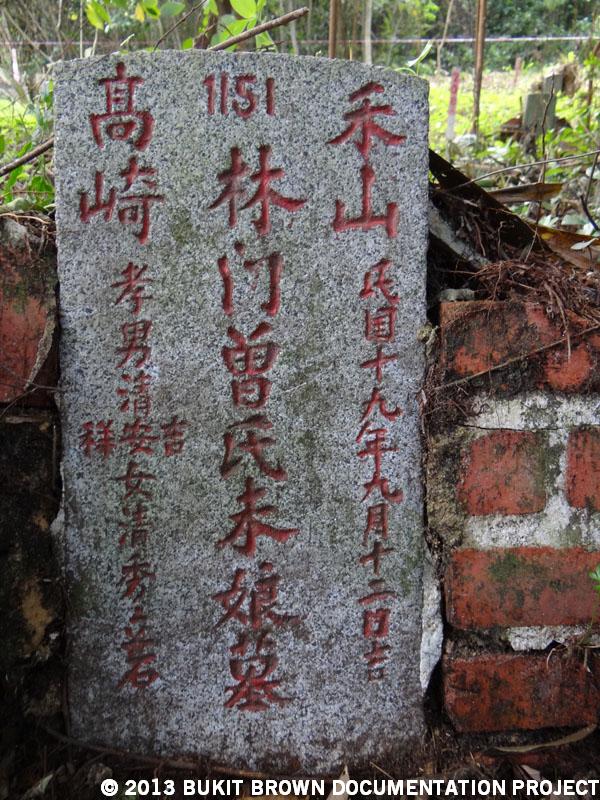 1151
禾山
民国十九年九月十二日吉
林门曾氏未娘墓
髙崎
孝男清吉安祥女清秀立石
© 2013 BUKIT BROWN DOCUMENTATION PROJECT